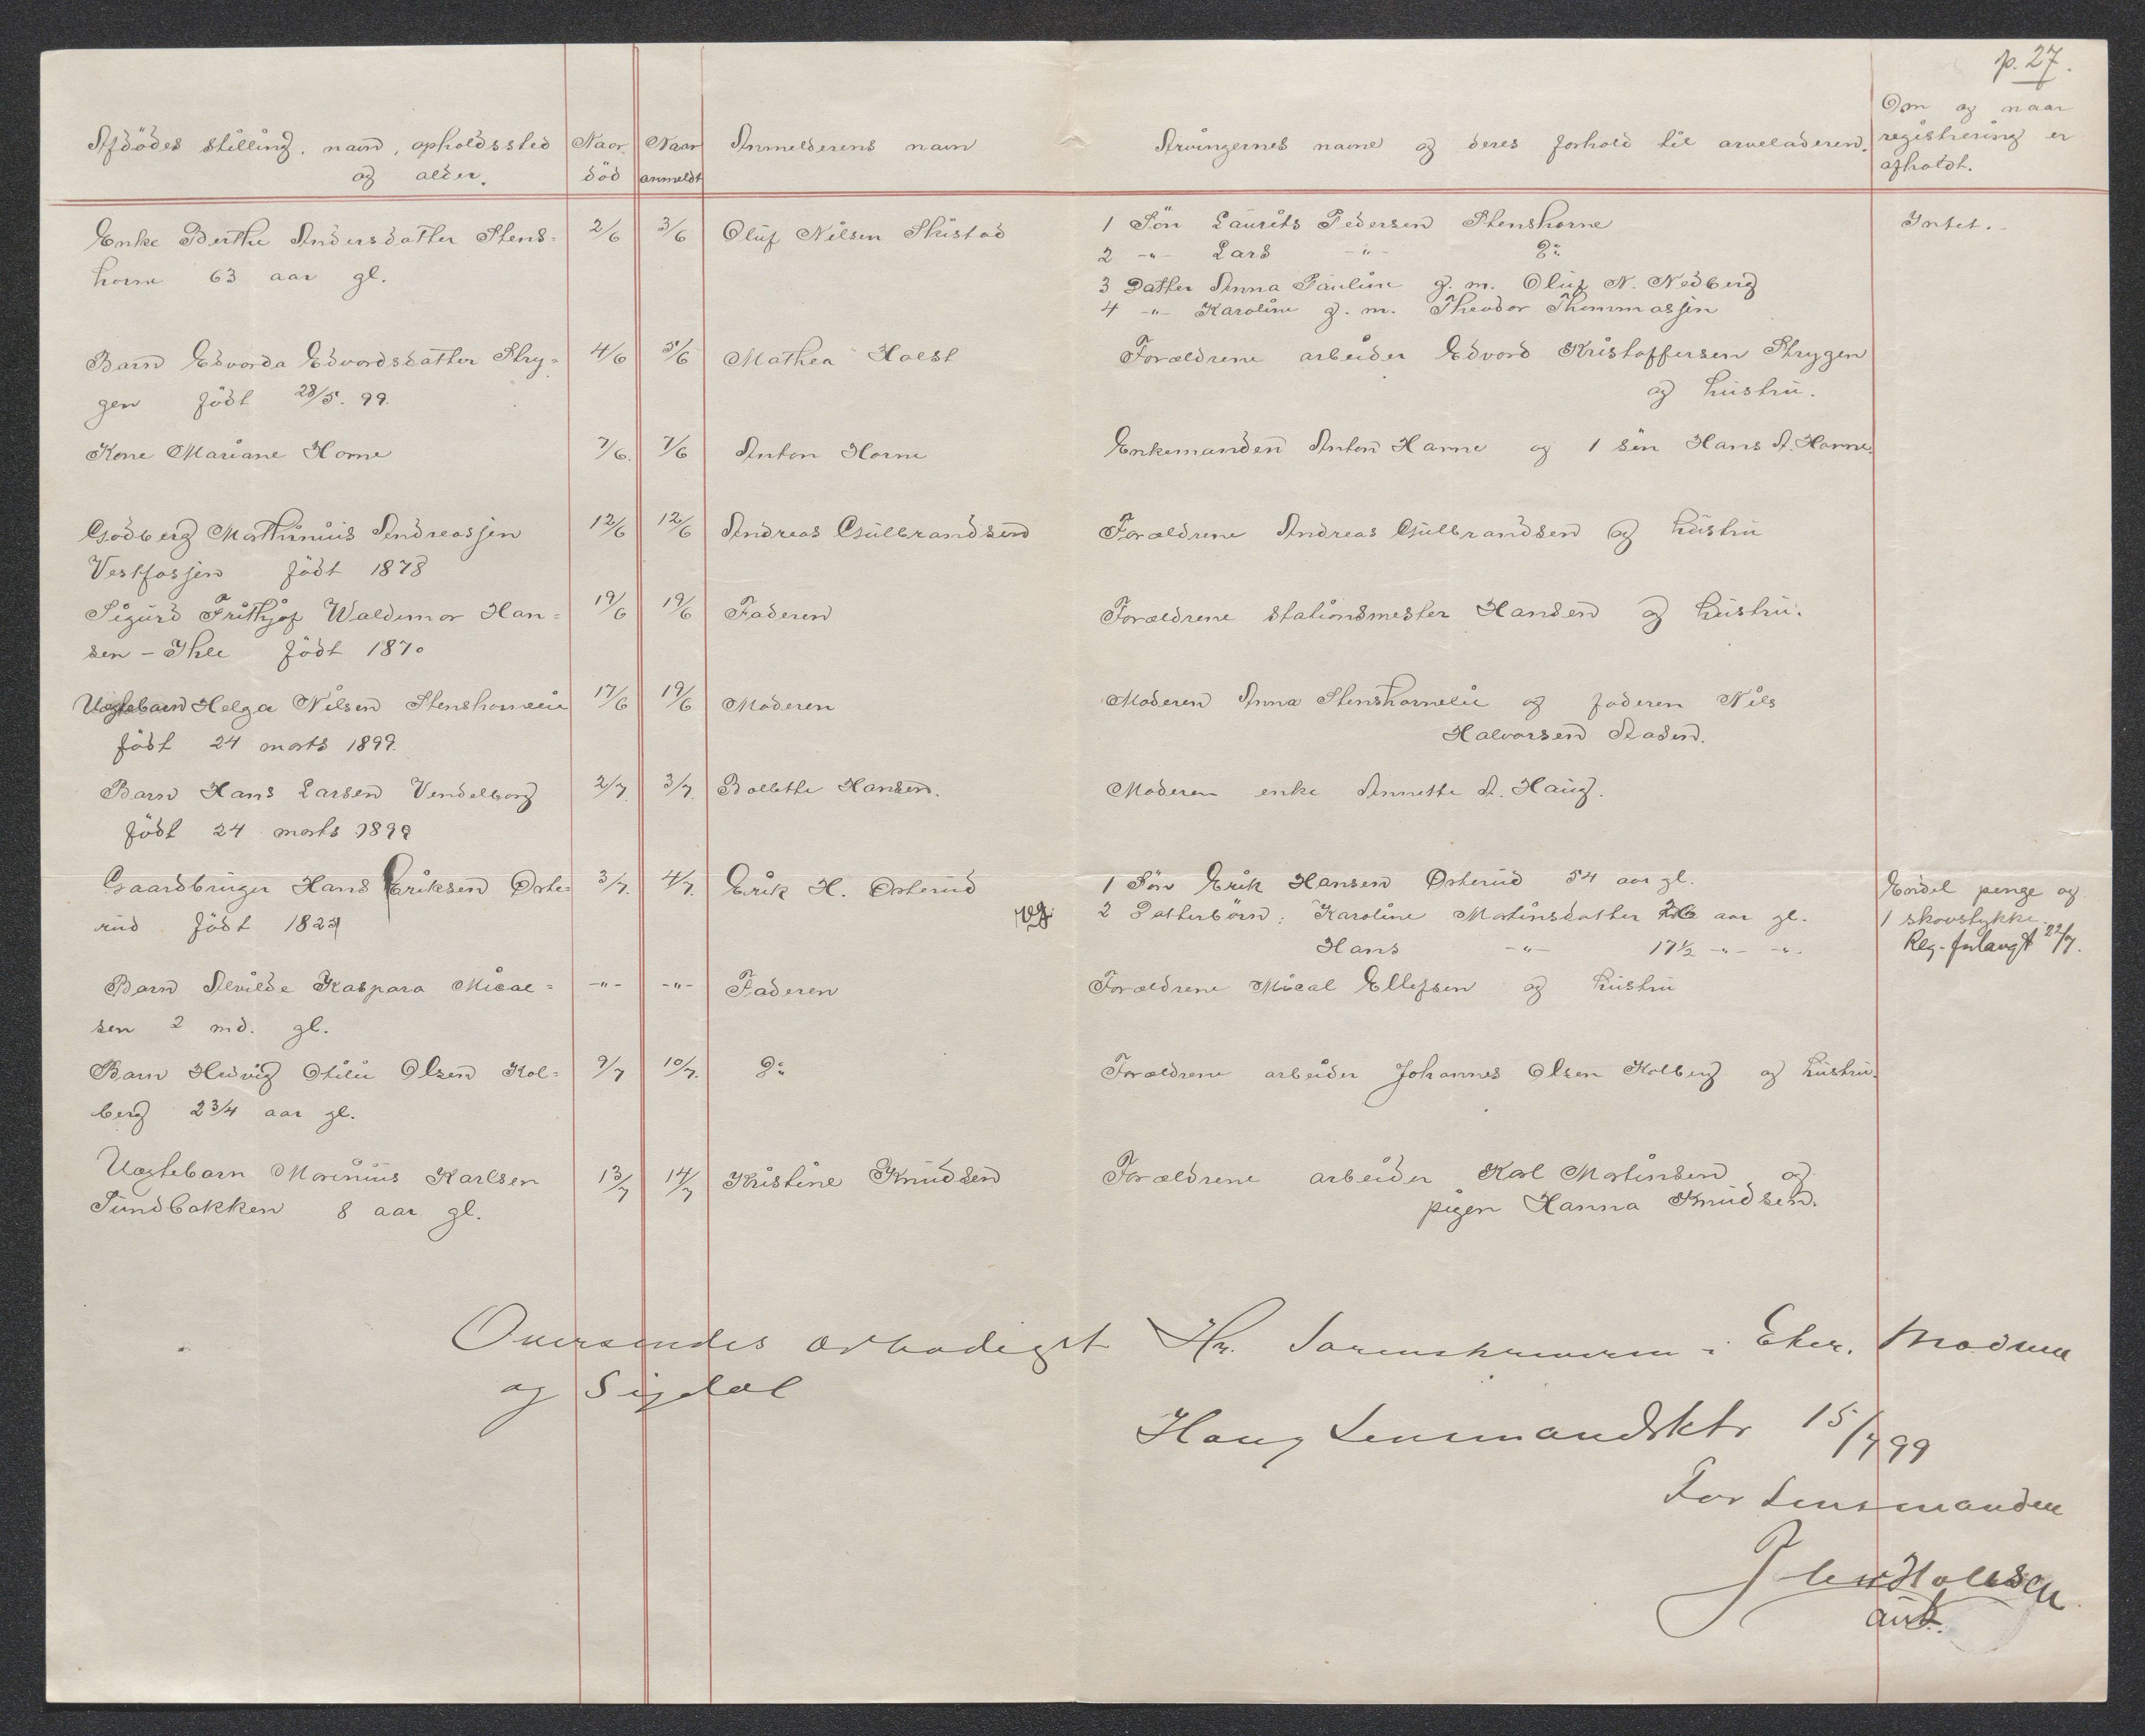 p. 27.
Afdödes stilling, navn, opholdssted Naar Naar Anmelderens navn Arvingernes navne og deres forhold til arveladeren. Om og naar
og alder. död anmeldt registrering er
afholdt.
Enke Berthe Andersdatter Stens= 2/6 3/6 Oluf Nilsen Skistad 1 Sön Laurits Pedersen Stenshorne Intet.
horne 63 aar gl. 2 -"- Lars -"- Do
3 Datter Anna Pauline g. m. Oluf N. Nedberg
4 -"- Karoline g. m. Theodor Thommassen
Barn Edvarda Edvardsdatter Stry= 4/6 5/6 Mathea Holst Forældrene arbeider Edvard Kristoffersen Strygen
gen födt 28/5. 99. og hustru.
Kone Mariane Horne 7/6. 7/6 Anton Horne Enkemanden Anton Horne og 1 sön Hans A. Horne.
Godberg Mathinius Andreassen 12/6 12/6 Andreas Gulbrandsen Forældrene Andreas Gulbrandsen og hustru
Vestfossen födt 1878
Sigurd Frithjof Waldemar Han= 19/6 19/6 Faderen Forældrene stationsmester Hansen og hustru.
sen - Ihle födt 1870
Uægtebarn Helga Nilsen Stenshorneie 17/6 19/6 Moderen Moderen Anna Stenshorneie og faderen Nils
födt 24 marts 1899. Halvorsen Aasen.
Barn Hans Larsen Vendelborg 2/7. 3/7. Bollette Hansen. Moderen enke Annette A. Haug.
födt 24 marts 1899
Gaardbruger Hans Eriksen Øste= 3/7. 4/7. Erik H. Østerud 1 Sön Erik Hansen Østerud 54 aar gl. Endel penge og
rud födt 1824 reg. 2 Datterbörn: Karoline Martinsdatter 26 aar gl. 1 skovstykke.
Hans -"- 17½ -"- -"-. Reg. forlangt 22/7.
Barn Alvilde Kaspara Mical= -"- -"- Faderen Forældrene Mical Ellefsen og hustru
sen 2 md. gl.
Barn Hedvig Otilie Olsen Kol= 9/7 10/7. Do Forældrene arbeider Johannes Olsen Kolberg og hustru.
berg 2 3/4 aar gl.
Uægtebarn Marinius Karlsen 13/7 14/7 Kristine Knudsen Forældrene arbeider Karl Martinsen og
Sundbakken 8 aar gl. pigen Hanna Knudsen.
Oversendes ærbødigst Hr. Sorenskriveren i Eker, Modum
og Sigdal
Haug Lensmandsktr 15/7 99
For Lensmanden
aut.